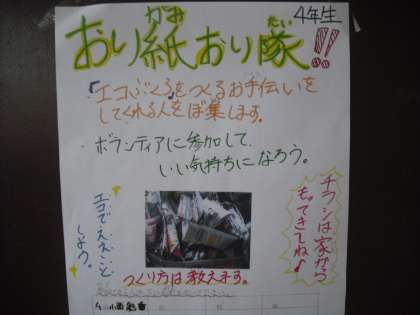 4年生
おり紙おり隊!!
がみ
たい
・「エコぶくろ」をつくるお手伝いを
してくれる人をぼ集します。
・ボランティアに参加して、
いい気持ちになろう。
エコでええこと
しよう。
チラシは家から
もってきてね♪
つくり方は教えます。